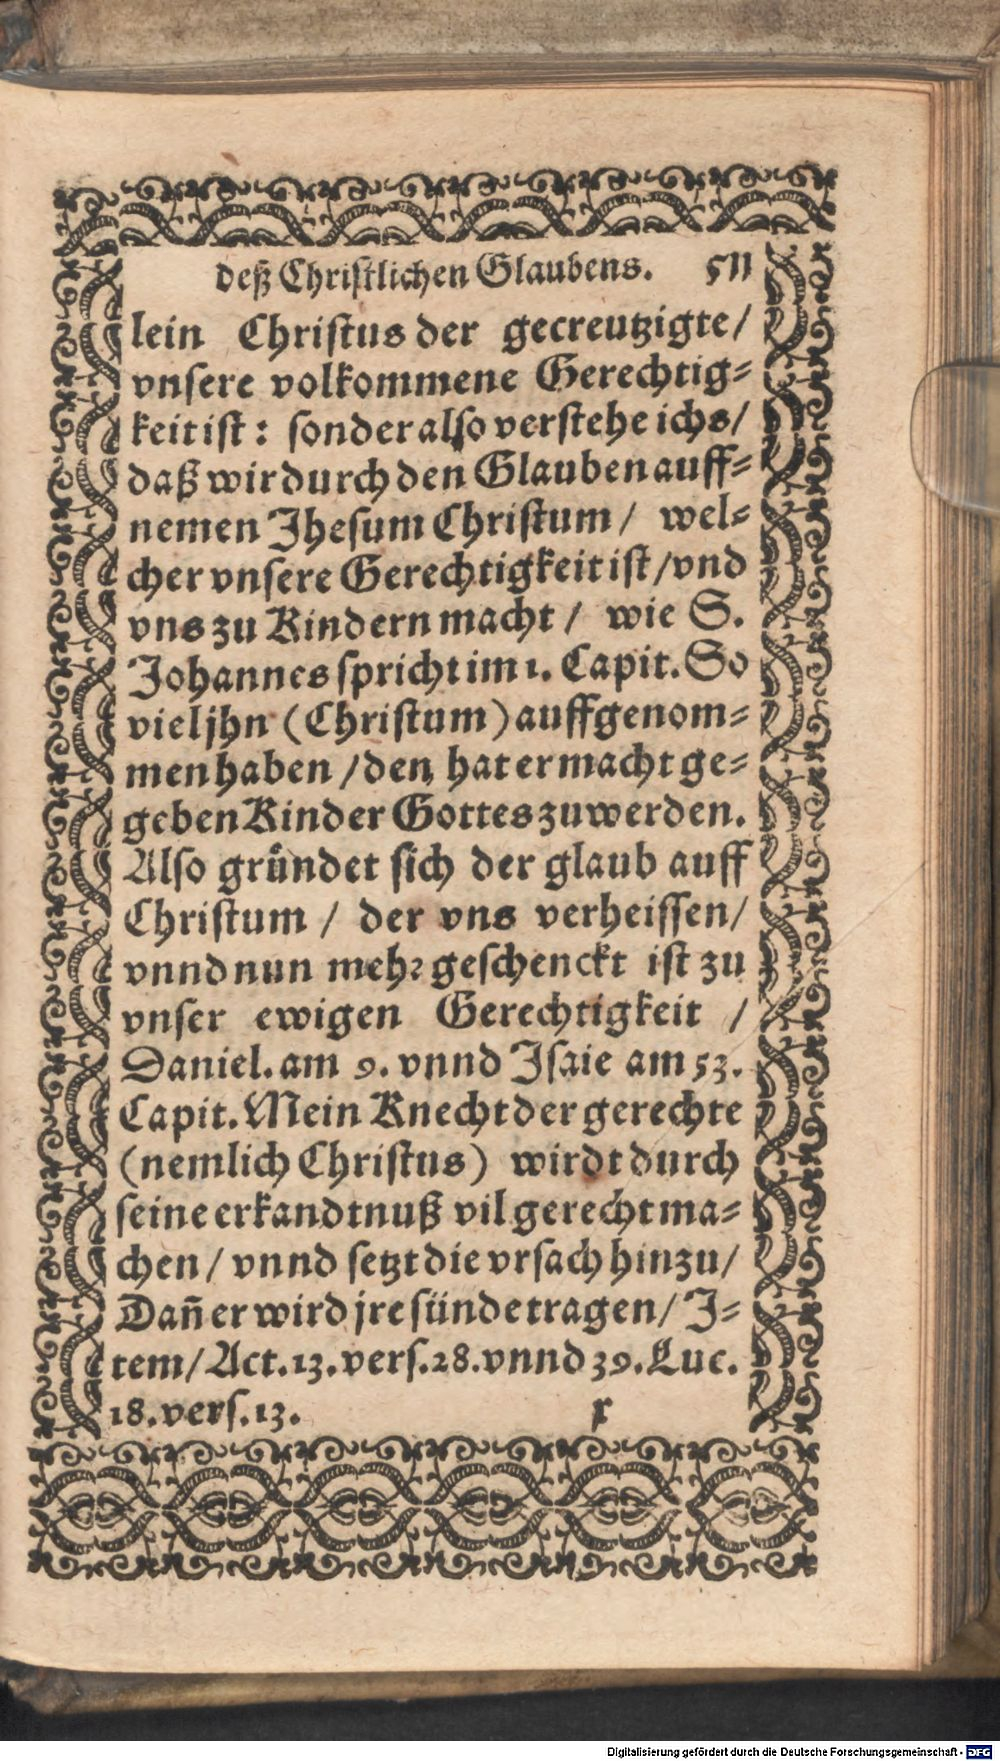 deß Christlichen Glaubens. 511
lein Christus der gecreutzigte/
vnsere volkommene Gerechtig⸗
keit ist: sonder also verstehe ichs/
daß wir durch den Glauben auff⸗
nemen Jhesum Christum/ wel⸗
cher vnsere Gerechtigkeit ist/vnd
vns zu Kindern macht/ wie S.
Johannes spricht im 1. Capit. So
viel jhn (Christum) auffgenom⸗
men haben/den hat er macht ge⸗
geben Kinder Gottes zu werden.
Also gründet sich der glaub auff
Christum/ der vns verheissen/
vnnd nun mehr geschenckt ist zu
vnser ewigen Gerechtigkeit /
Daniel. am 9. vnnd Isaie am 53.
Capit. Mein Knecht der gerechte
(nemlich Christus) wirdt durch
seine erkandtnuß vil gerecht ma⸗
chen/ vnnd setzt die vrsach hinzu/
Dañ er wird jre sünde tragen/ J⸗
tem/ Act. 13. vers. 28. vnnd 39. Luc.
18. vers. 13. x
Digitalisierung gefördert durch die Deutsche Forschungsgemeinschaft - DFG